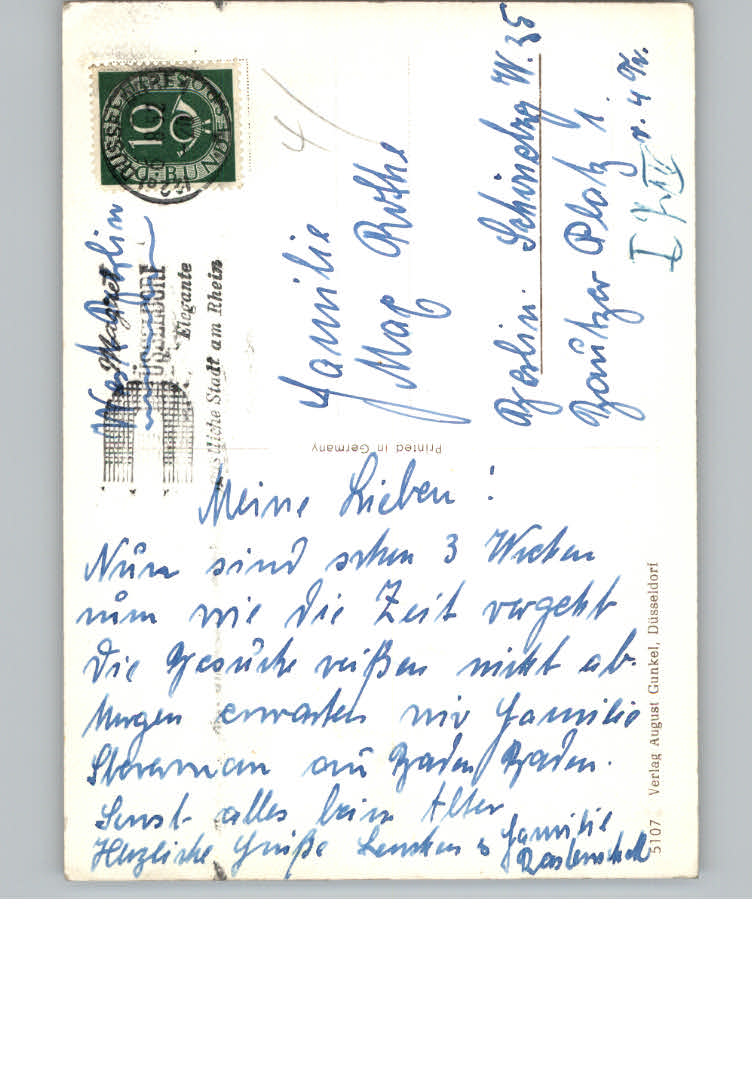 Meine Lieben!
Nun sind schon 3 Wochen
rum wie die Zeit vergeht
die Besuche reißen nicht ab.
Morgen erwarten wir Familie
aus Baden Baden.
Sonst alles beim Alten
Herzliche Grüße Lenchen u Familie
West Berlin
Familie
Max Rothe
Berlin Schöneberg W. 35
Bautzer Platz 1
v. 4 Tr.
4
10
DÜSSELDORF
Magnet
DÜSSELDORF
Elegante
gastliche Stadt am Rhein
Printed in Germany
5107 Verlag August Gunkel, Düsseldorf